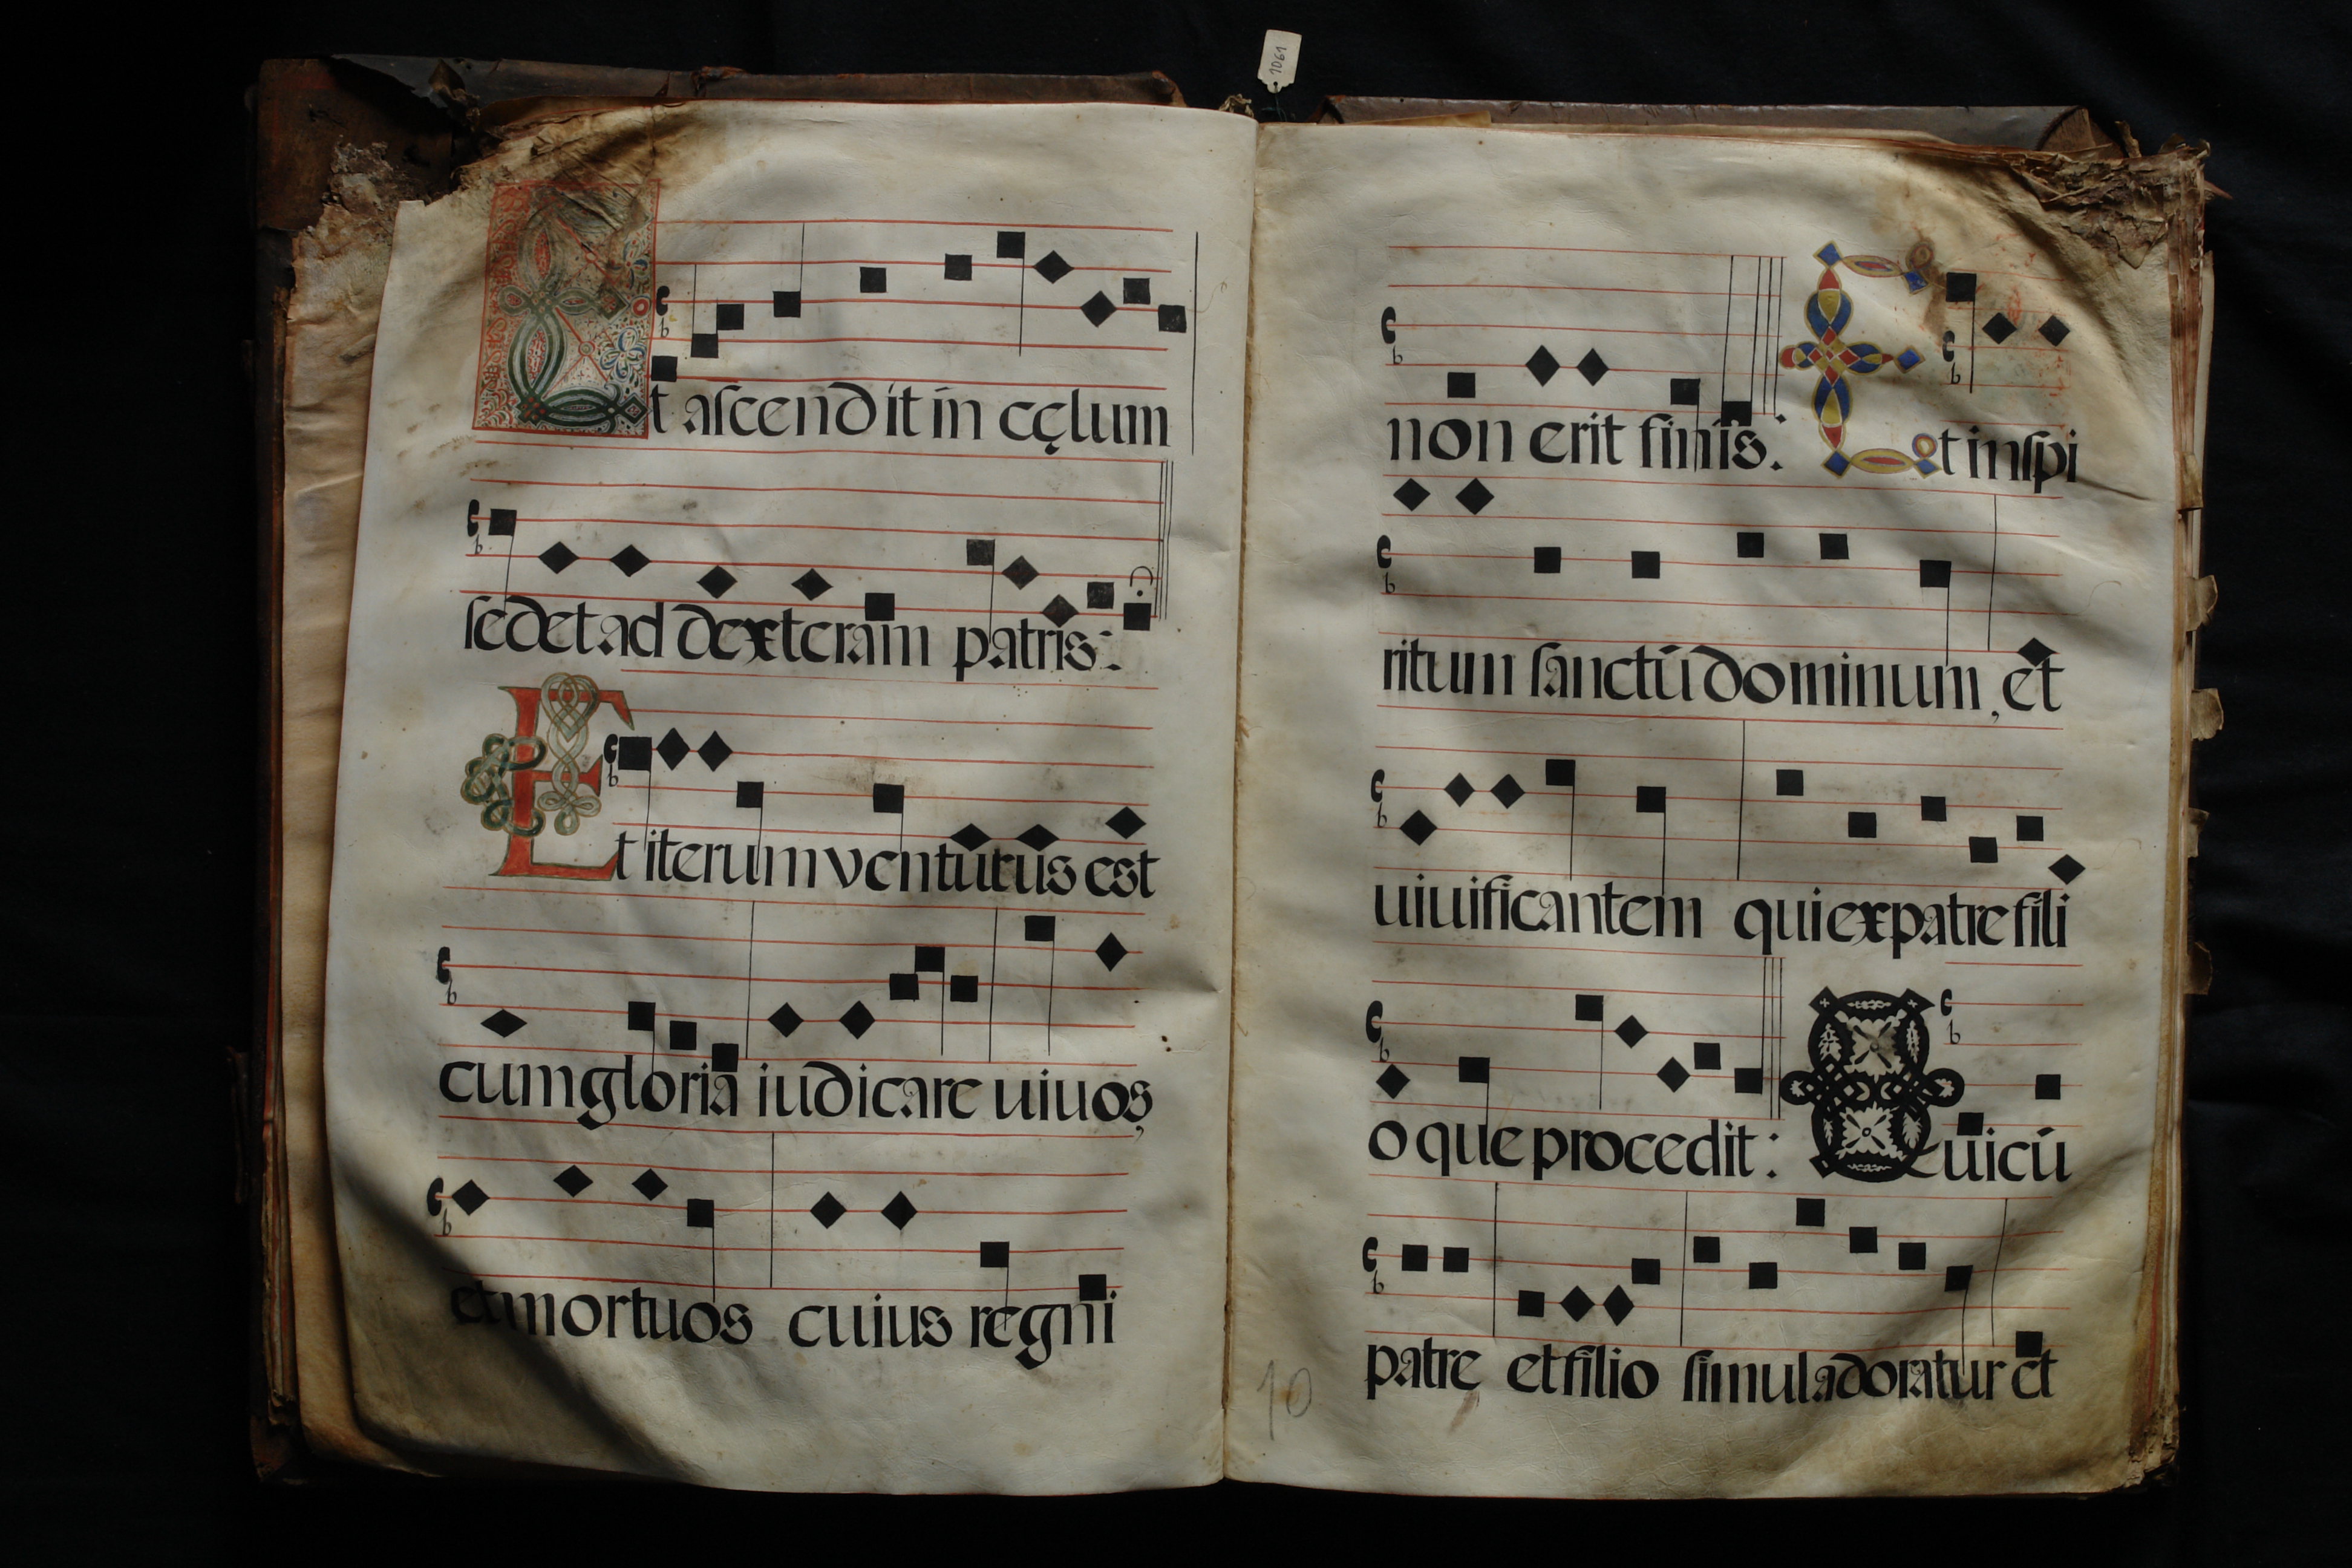 1061
Et ascendit in cęlum
sedet ad dexteram patris:
Et iterum venturus est
cum gloria iudicare uiuos,
et mortuos cuius regni
non erit finis: Et inspi
ritum sanctū dominum, et
uiuificantem qui ex patre fili
o que procedit: Qui cū
patre et filio simul adoratur et
10